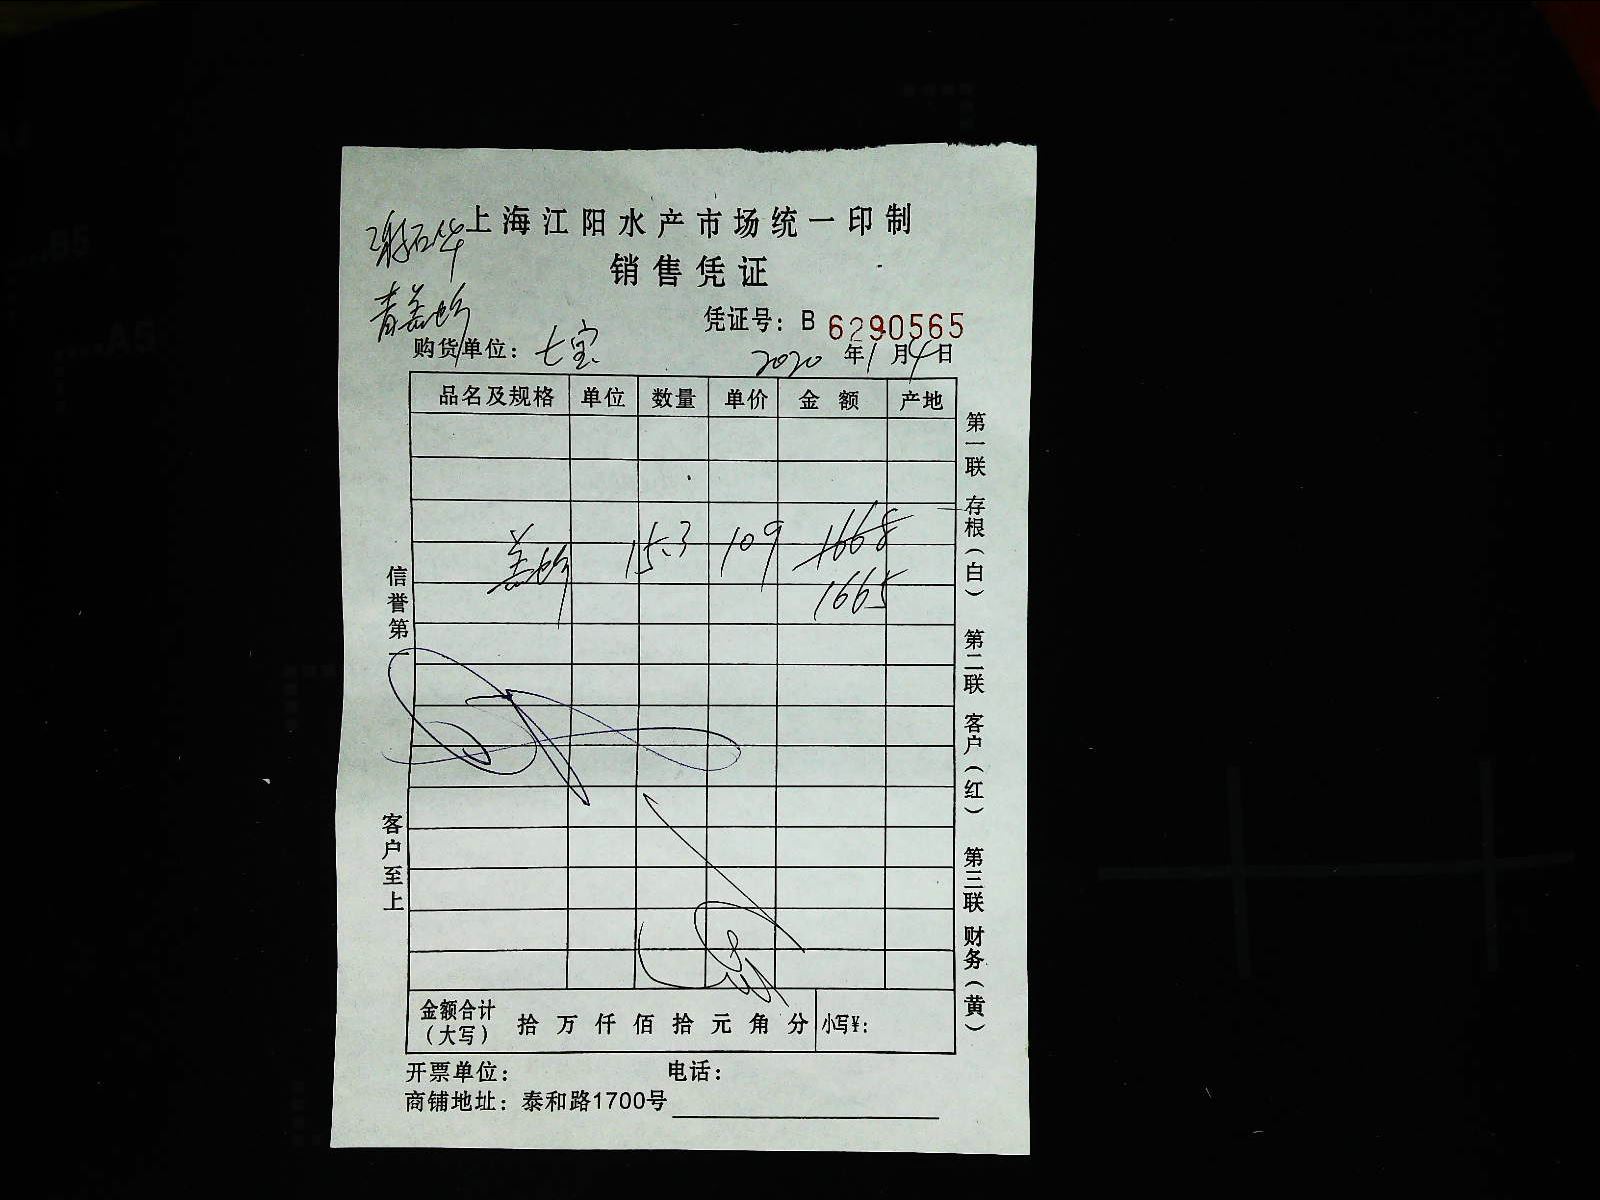 谢石华
上海江阳水产市场统一印制
销售凭证
青盖蚧
凭证号：B 6290565
购货单位：七宝
2020 年 1 月 4 日
品名及规格 单位 数量 单价 金额 产地
盖蚧 15.3 109 1668
1665
金额合计（大写） 拾 万 仟 佰 拾 元 角 分 小写¥：
开票单位： 电话：
商铺地址：泰和路1700号
信誉第一
客户至上
第一联 存根（白）
第二联 客户（红）
第三联 财务（黄）